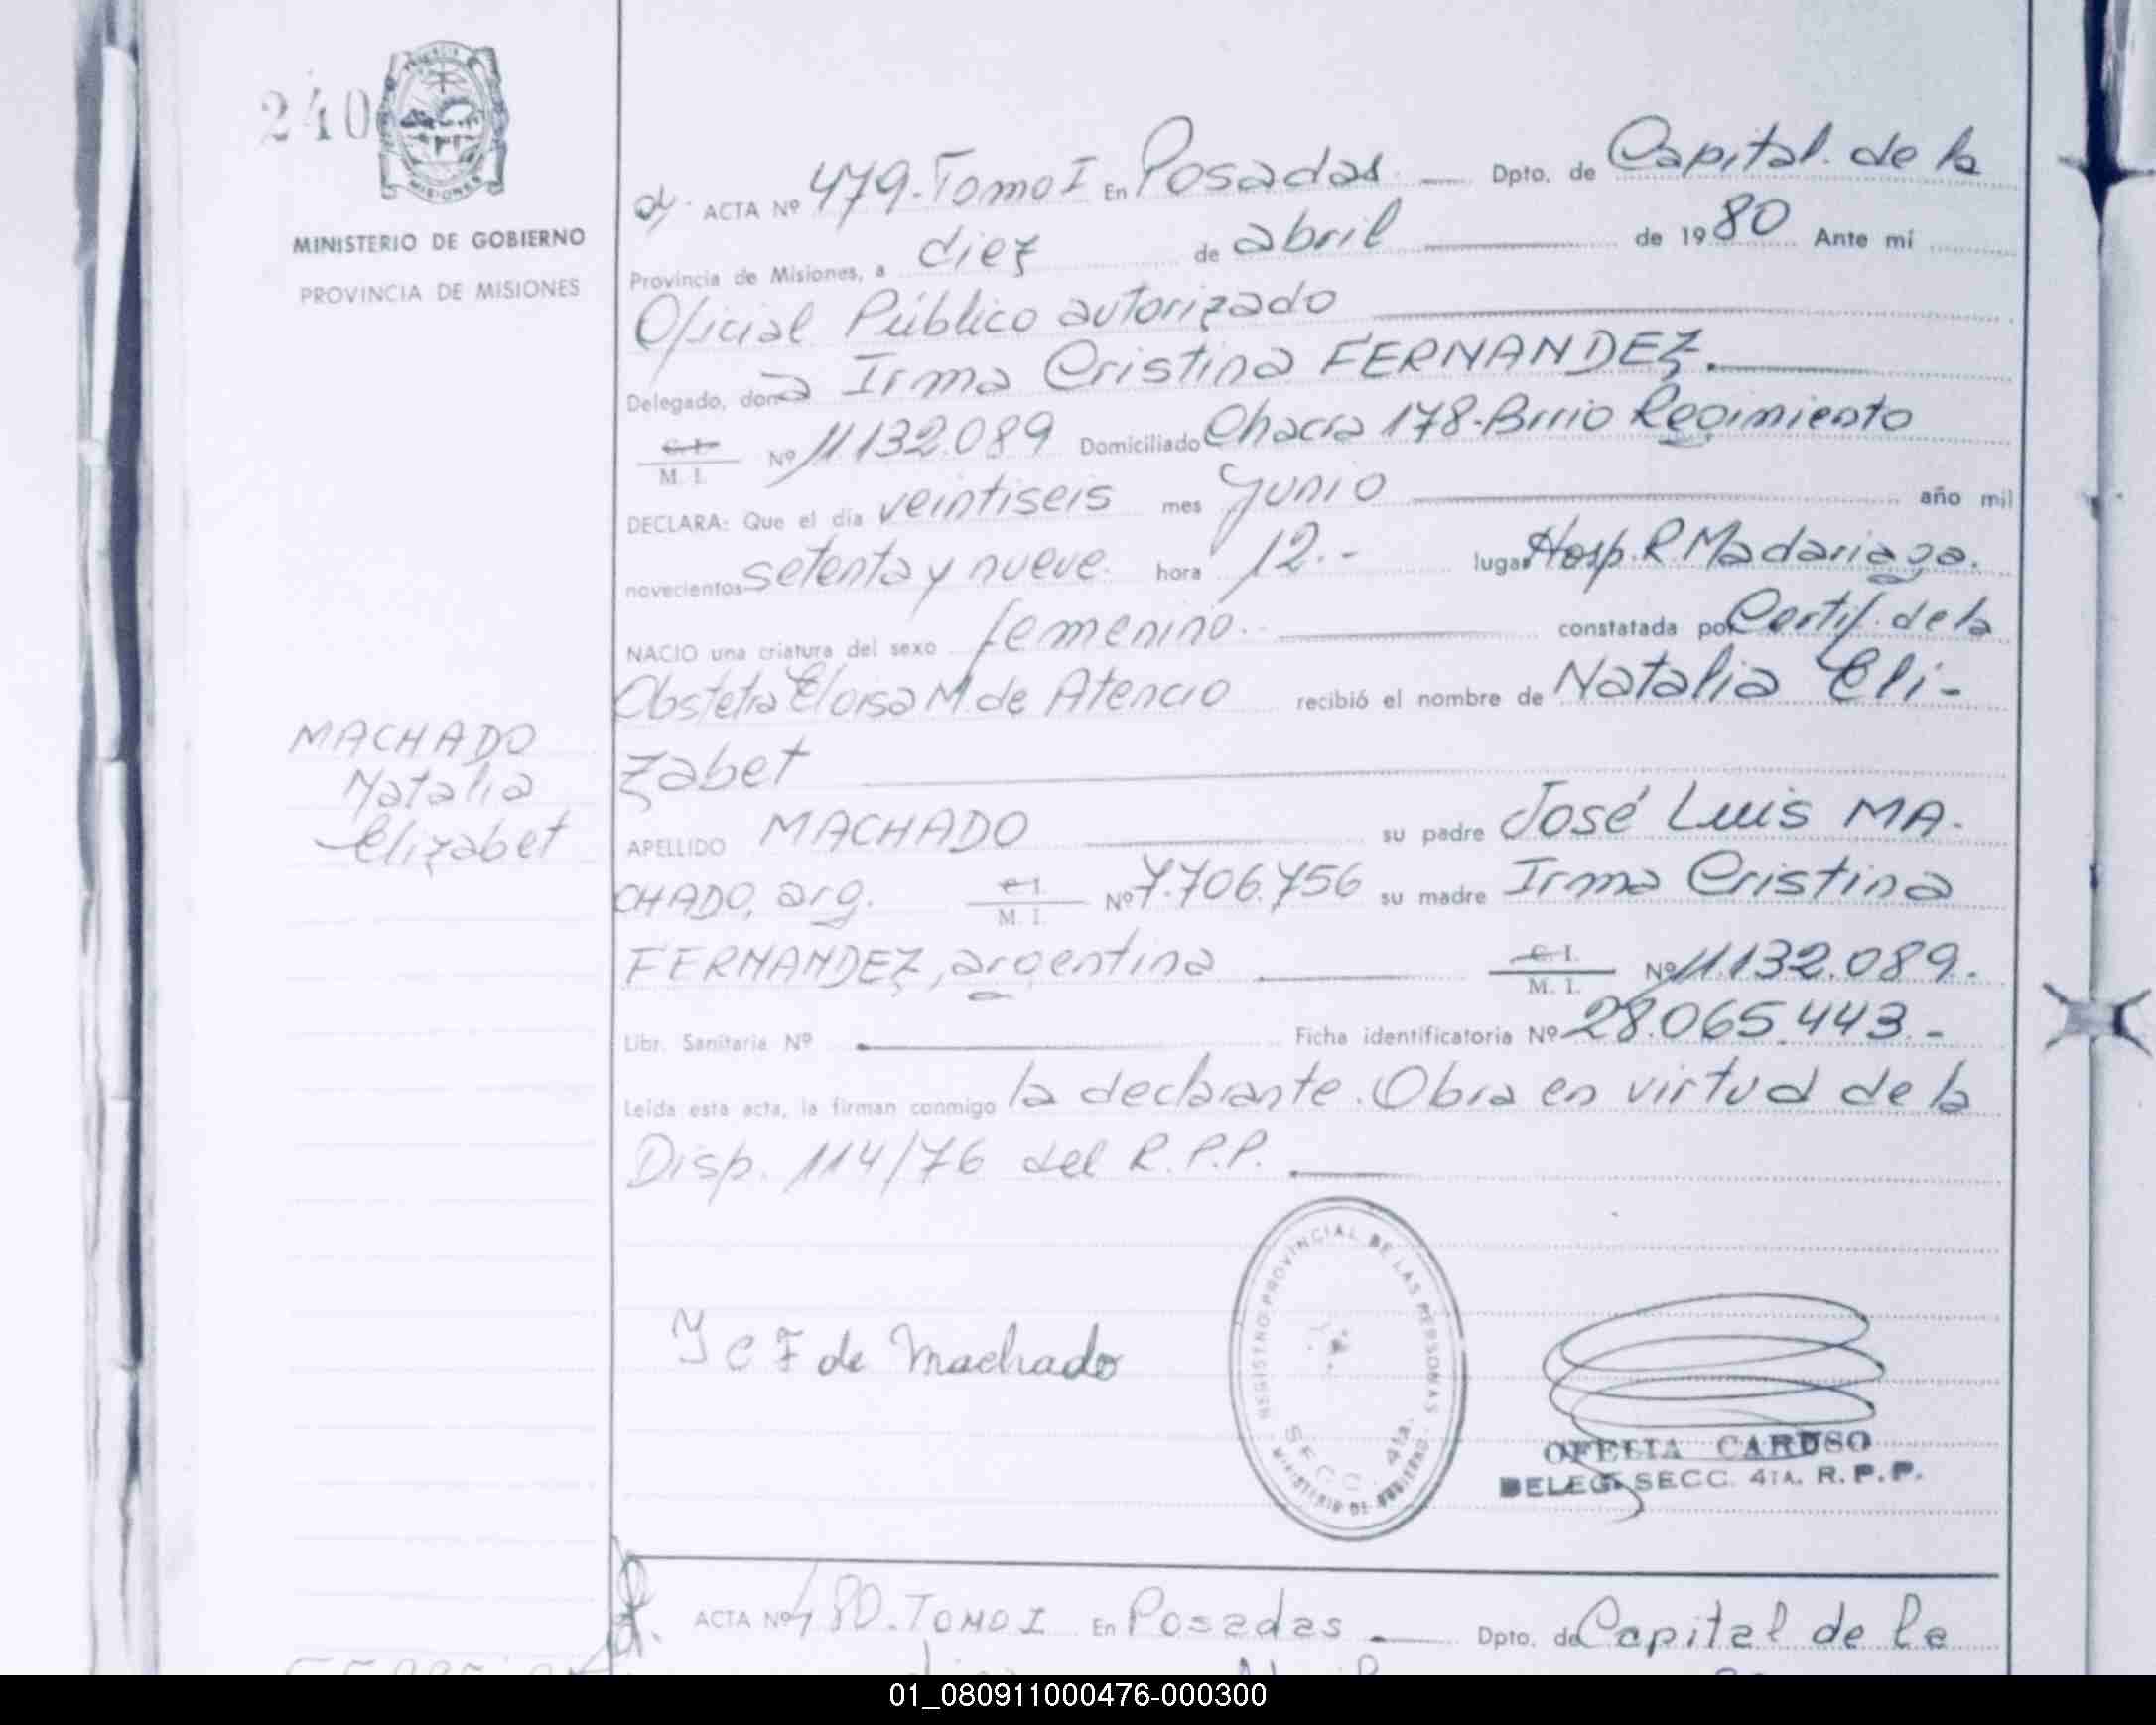 240
PROVINCIA
MISIONES
MINISTERIO DE GOBIERNO
PROVINCIA DE MISIONES
ACTA Nº 479. Tomo I En Posadas Dpto. de Capital. de la
Provincia de Misiones, a diez de abril de 1980 Ante mí
Oficial Público autorizado
Delegado, don a Irma Cristina FERNANDEZ.
C. I.
M. I. Nº 11132.089 Domiciliado Chacra 178-Brrio Regimiento
DECLARA: Que el día veintiseis mes Junio año mil
novecientos setenta y nueve. hora 12.- lugar Hosp. R. Madariaga.
NACIO una criatura del sexo femenino.- constatada por Certif. de la
Obstetra Eloisa M. de Atencio recibió el nombre de Natalia Eli-
zabet
MACHADO
Natalia
Elizabet
APELLIDO MACHADO su padre José Luis MA-
CHADO, arg. C. I.
M. I. Nº 7.706.756 su madre Irma Cristina
FERNANDEZ, argentina C. I.
M. I. Nº 11.132.089.
Libr. Sanitaria Nº Ficha identificatoria Nº 28.065.443.-
Leída esta acta, la firman conmigo la declarante. Obra en virtud de la
Disp. 114/76 del R.P.P.
I C F de Machado
REGISTRO PROVINCIAL DE LAS PERSONAS
SECC. 4ta.
MINISTERIO DE GOBIERNO
OFELIA CARUSO
DELEG. SECC. 4TA. R. P. P.
ACTA Nº 480. TOMO I En Posadas Dpto. de Capital de la
01_080911000476-000300